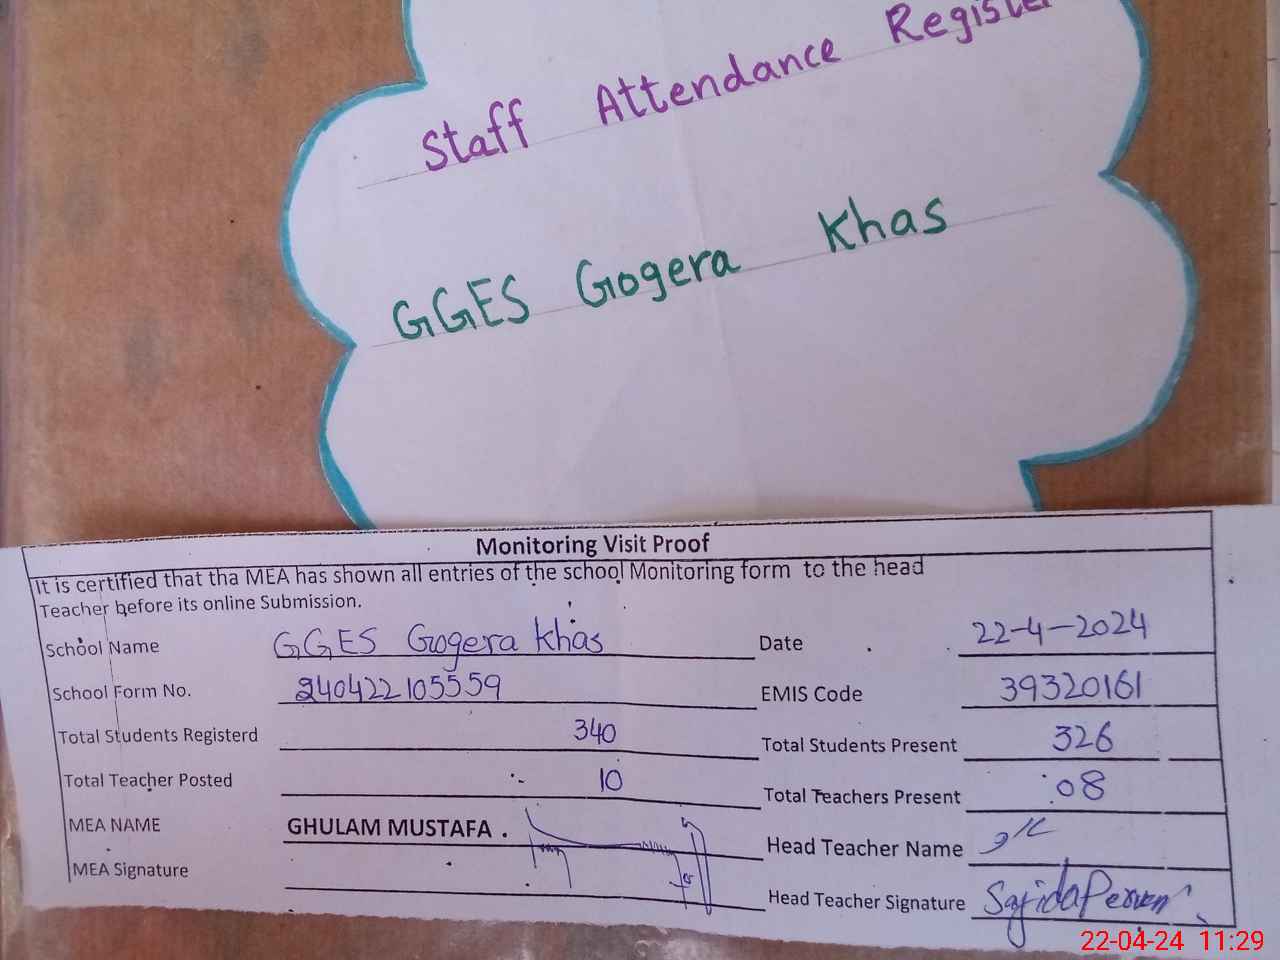 Staff Attendance Register
GGES Gogera Khas
Monitoring Visit Proof
It is certified that tha MEA has shown all entries of the school Monitoring form to the head
Teacher before its online Submission.
School Name GGES Gogera Khas Date 22-4-2024
School Form No. 240422105559 EMIS Code 39320161
Total Students Registerd 340 Total Students Present 326
Total Teacher Posted 10 Total Teachers Present 08
MEA NAME GHULAM MUSTAFA . Head Teacher Name
MEA Signature Head Teacher Signature Sajida Perveen
22-04-24 11:29